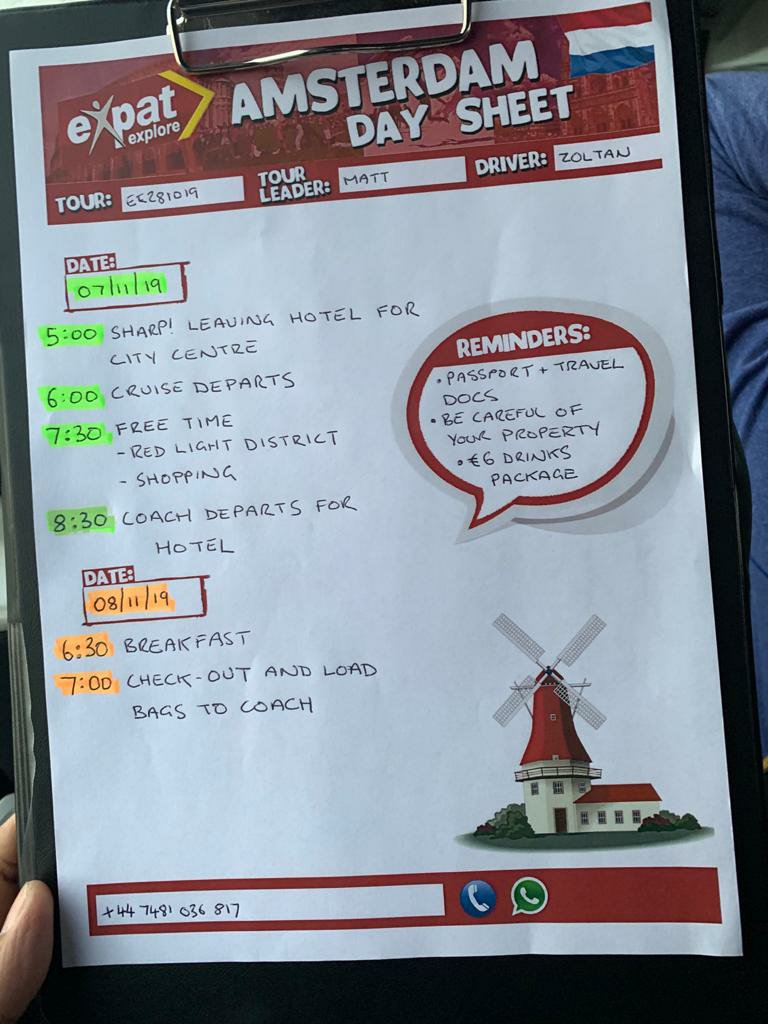 expat
explore
AMSTERDAM
DAY SHEET
TOUR: EE281019
TOUR
LEADER: MATT
DRIVER: ZOLTAN
DATE:
07/11/19
5:00 SHARP! LEAVING HOTEL FOR
CITY CENTRE
6:00 CRUISE DEPARTS
7:30 FREE TIME
- RED LIGHT DISTRICT
- SHOPPING
8:30 COACH DEPARTS FOR
HOTEL
REMINDERS:
• PASSPORT + TRAVEL
DOCS
• BE CAREFUL OF
YOUR PROPERTY
• €6 DRINKS
PACKAGE
DATE:
08/11/19
6:30 BREAKFAST
7:00 CHECK-OUT AND LOAD
BAGS TO COACH
+44 7481 036 817